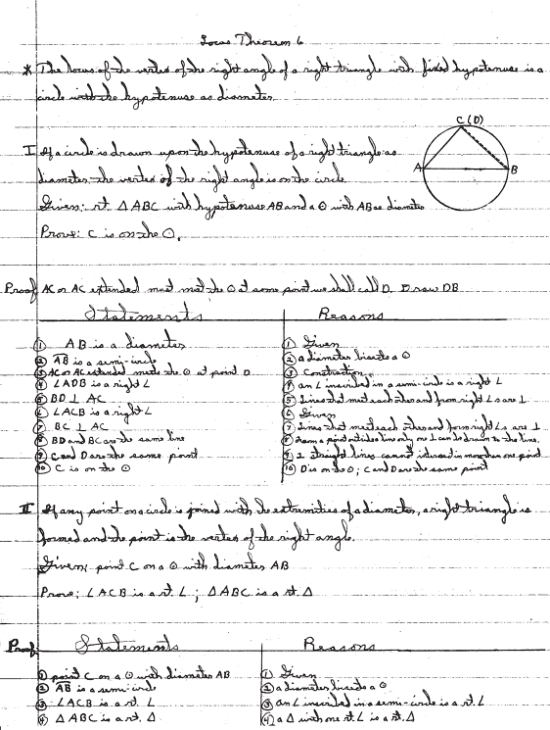 Locus Theorem 6
* The locus of the vertex of the right angle of a right triangle with fixed hypotenuse is a
circle with the hypotenuse as diameter.
C (D)
A
B
I If a circle is drawn upon the hypotenuse of a right triangle as
diameter the vertex of the right angle is on the circle
Given: rt. △ ABC with hypotenuse AB and a ⊙ with AB as diameter
Prove: C is on the ⊙.
Proof AC or AC extended must meet the ⊙ at some point we shall call D. Draw DB
Statements Reasons
① AB is a diameter ① Given
② AB is a semi-circle ② a diameter bisects a ⊙
③ AC or AC extended meets the ⊙ at point D ③ Construction
④ ∠ADB is a right ∠ ④ an ∠ inscribed in a semi-circle is a right ∠
⑤ BD ⊥ AC ⑤ Lines that meet each other and form right ∠s are ⊥
⑥ ∠ACB is a right ∠ ⑥ Given
⑦ BC ⊥ AC ⑦ Lines that meet each other and form right ∠s are ⊥
⑧ BD and BC are the same line ⑧ From a point outside a line only one ⊥ can be drawn to the line.
⑨ C and D are the same point ⑨ 2 straight lines cannot intersect in more than one point
⑩ C is on the ⊙ ⑩ D is on the ⊙; C and D are the same point
II If any point on a circle is joined with the extremities of a diameter, a right triangle is
formed and the point is the vertex of the right angle.
Given: point C on a ⊙ with diameter AB
Prove: ∠ACB is a rt. ∠; △ABC is a rt. △
Proof Statements Reasons
① point C on a ⊙ with diameter AB ① Given
② AB is a semi-circle ② a diameter bisects a ⊙
③ ∠ACB is a rt. ∠ ③ an ∠ inscribed in a semi-circle is a rt. ∠
④ △ ABC is a rt. △ ④ a △ with one rt. ∠ is a rt. △